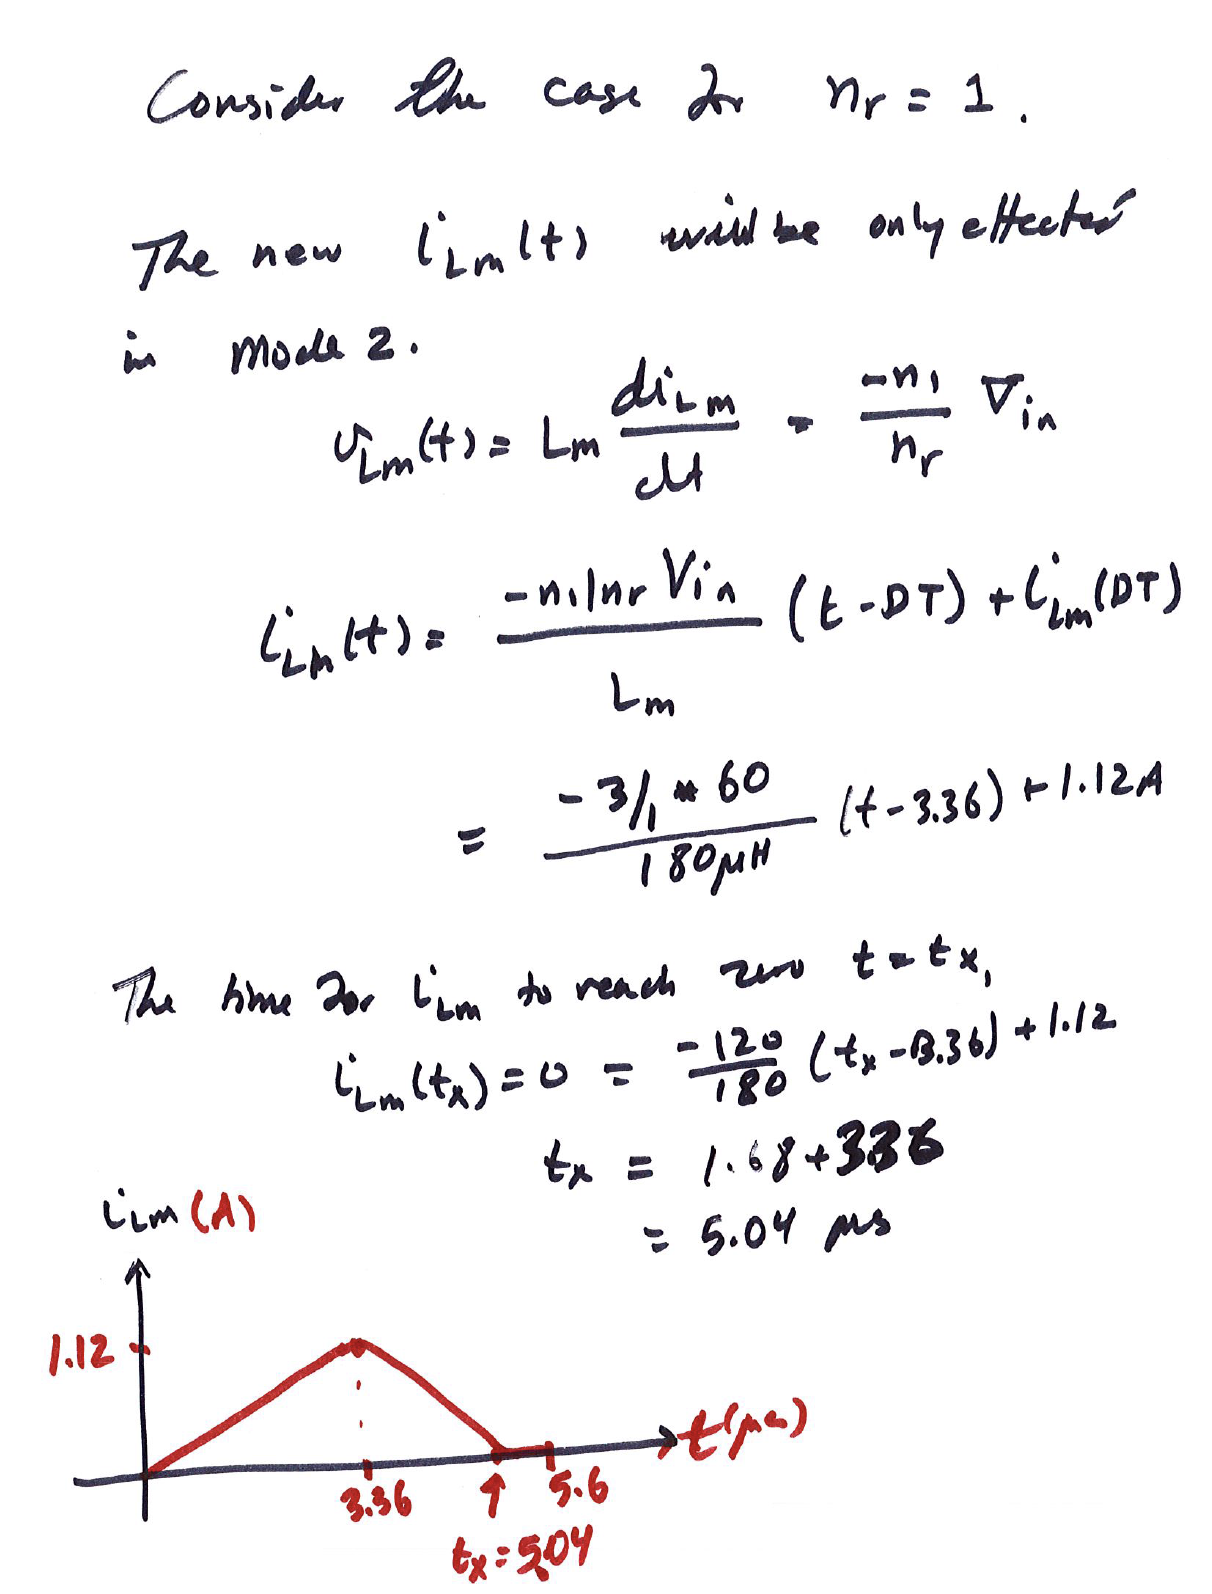 Consider the case for nr = 1.
The new iLm(t) will be only effected
in mode 2.
vLm(t) = Lm diLm/dt = -n1/nr Vin
iLm(t) = -n1/nr Vin / Lm (t - DT) + iLm(DT)
= -3/1 * 60 / 180μH (t - 3.36) + 1.12A
The time for iLm to reach zero t = tx,
iLm(tx) = 0 = -120/180 (tx - 3.36) + 1.12
tx = 1.68 + 3.36
= 5.04 μs
iLm (A)
1.12
t(μs)
3.36
5.6
tx = 5.04